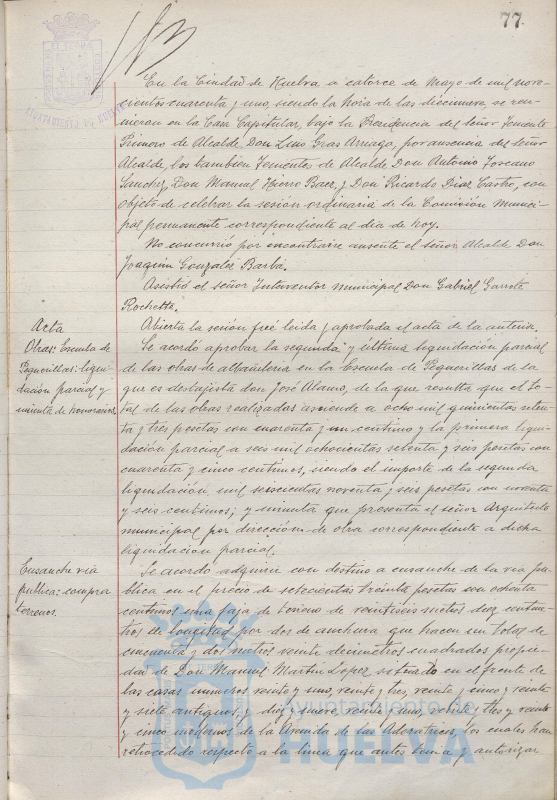 77.
AYUNTAMIENTO DE HUELVA
En la Ciudad de Huelva a catorce de Mayo de mil nove-
cientos cuarenta y uno, siendo la hora de las diecinueve, se reu-
nieron en la Casa Capitular, bajo la Presidencia del Señor Teniente
Primero de Alcalde, Don Luis Gras Arnago, por ausencia del señor
Alcalde, los tambien Tenientes de Alcalde Don Antonio Toscano
Sanchez, Don Manuel Hierro Baez, y Don Ricardo Diaz Castro, con
objeto de celebrar la sesión ordinaria de la Comisión Munici-
pal permanente correspondiente al dia de hoy.
No concurrió por encontrarse ausente el señor Alcalde Don
Joaquin Gonzalez Barba.
Asistió el señor Interventor municipal Don Gabriel Garrote
Rochette.
Acta
Abierta la sesión fué leida y aprobada el acta de la anterior.
Obras: Escuela de
Pequerillas: liqui-
dación parcial y
minuta de honorarios
Se acordó aprobar la segunda y última liquidación parcial
de las obras de albañileria en la Escuela de Pequerillas de la
que es destajista don José Alamo, de la que resulta que el to-
tal de las obras realizadas asciende a ocho mil quinientas seten-
ta y tres pesetas con cuarenta y un centimo y la primera liqui-
dación parcial a seis mil ochocientas setenta y seis pesetas con
cuarenta y cinco centimos, siendo el importe de la segunda
liquidación mil seiscientas noventa y seis pesetas con noventa
y seis centimos; y minuta que presenta el señor Arquitecto
municipal por dirección de obra correspondiente a dicha
liquidación parcial.
Ensanche via
publica: compra
terrenos.
Se acordó adquirir con destino a ensanche de la via pu-
blica en el precio de setecientas treinta pesetas con ochenta
centimos una faja de terreno de veintiseis metros diez centime-
tros de longitud por dos de anchura que hacen un total de
cincuenta y dos metros veinte decimetros cuadrados propie-
dad de Don Manuel Martin Lopez situado en el frente de
las casas numeros veinte y uno, veinte y tres, veinte y cinco y veinte
y siete antiguos, y diez y nueve, veinte y uno, veinte y tres y veinte
y cinco modernos de la Avenida de las Adoratrices, los cuales han
retrocedido respecto a la linea que antes tenia y autorizar
Ayuntamiento de
HUELVA